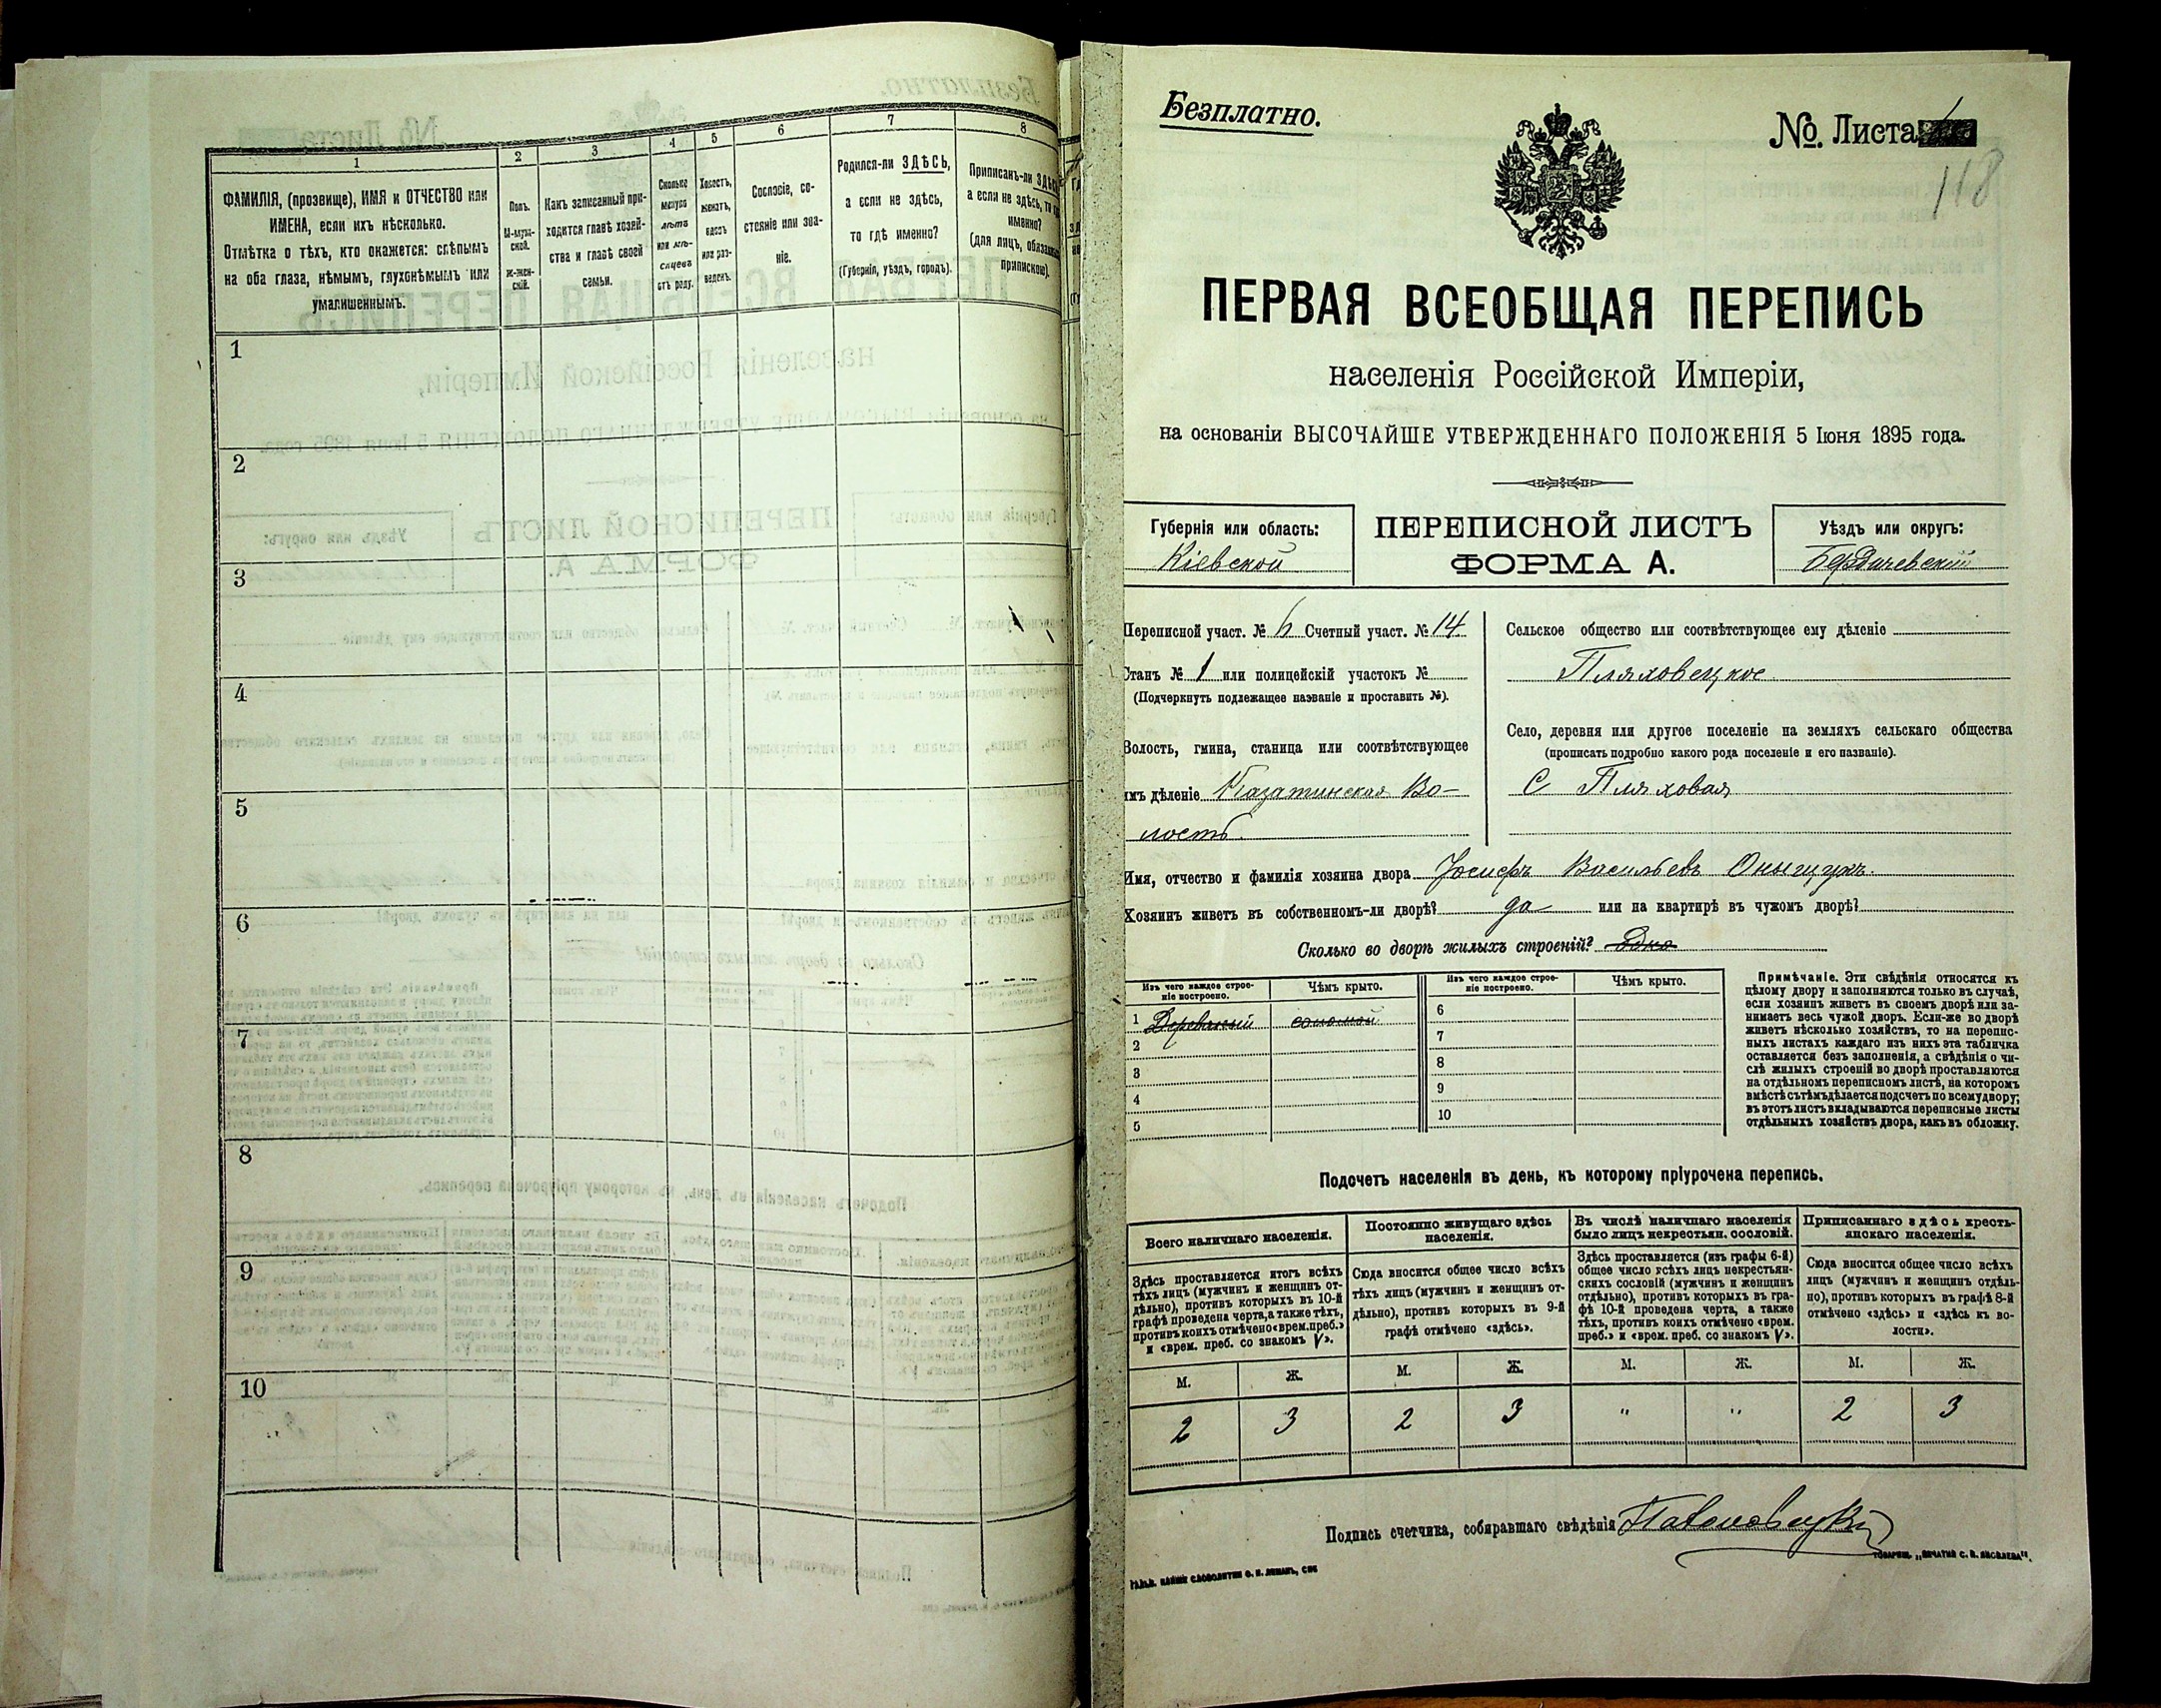 1
2
3
4
5
6
7
8
ФАМИЛІЯ, (прозвище), ИМЯ и ОТЧЕСТВО или
ИМЕНА, если ихъ нѣсколько.
Отмѣтка о тѣхъ, кто окажется: слѣпымъ
на оба глаза, нѣмымъ, глухонѣмымъ или
умалишеннымъ.
Полъ.
М-муж-
ской.
Ж-жен-
скій.
Какъ записанный при-
ходится главѣ хозяй-
ства и главѣ своей
семьи.
Сколько
минуло
лѣтъ
или мѣ-
сяцевъ
отъ роду.
Холостъ,
женатъ,
вдовъ
или раз-
веденъ.
Сословіе, со-
стояніе или зва-
ніе.
Родился-ли ЗДѢСЬ,
а если не здѣсь,
то гдѣ именно?
(Губернія, уѣздъ, городъ).
Приписанъ-ли
а если не здѣсь, то
именно?
(для лицъ,
припискою).
1
2
3
4
5
6
7
8
9
10
Безплатно.
№. Листа
118
ПЕРВАЯ ВСЕОБЩАЯ ПЕРЕПИСЬ
населенія Россійской Имперіи,
на основаніи ВЫСОЧАЙШЕ УТВЕРЖДЕННАГО ПОЛОЖЕНІЯ 5 Іюня 1895 года.
Губернія или область:
Кіевской
ПЕРЕПИСНОЙ ЛИСТЪ
ФОРМА А.
Уѣздъ или округъ:
Бердичевскій
Переписной участ. № 6 Счетный участ. № 14
Станъ № 1 или полицейскій участокъ №
(Подчеркнуть подлежащее названіе и проставить №).
Волость, гмина, станица или соотвѣтствующее
имъ дѣленіе Казатинская Во-
лость.
Сельское общество или соотвѣтствующее ему дѣленіе
Пляховецкое
Село, деревня или другое поселеніе на земляхъ сельскаго общества
(прописать подробно какого рода поселеніе и его названіе).
С Пляховая
Имя, отчество и фамилія хозяина двора Іосифъ Васильевъ Онищукъ.
Хозяинъ живетъ въ собственномъ-ли дворѣ? да или на квартирѣ въ чужомъ дворѣ?
Сколько во дворѣ жилыхъ строеній? Одно
Изъ чего каждое строе-
ніе построено.
Чѣмъ крыто.
Изъ чего каждое строе-
ніе построено.
Чѣмъ крыто.
1 Деревяный соломой
2
3
4
5
6
7
8
9
10
Примѣчаніе. Эти свѣдѣнія относятся къ
цѣлому двору и заполняются только въ случаѣ,
если хозяинъ живетъ въ своемъ дворѣ или за-
нимаетъ весь чужой дворъ. Если-же во дворѣ
живетъ нѣсколько хозяйствъ, то на перепис-
ныхъ листахъ каждаго изъ нихъ эта табличка
оставляется безъ заполненія, а свѣдѣнія о чи-
слѣ жилыхъ строеній во дворѣ проставляются
на отдѣльномъ переписномъ листѣ, на которомъ
вмѣстѣ съ тѣмъ дѣлается подсчетъ по всему двору;
въ этотъ листъ вкладываются переписные листы
отдѣльныхъ хозяйствъ двора, какъ въ обложку.
Подсчетъ населенія въ день, къ которому пріурочена перепись.
Всего наличнаго населенія.
Постоянно живущаго здѣсь
населенія.
Въ числѣ наличнаго населенія
было лицъ некрестьян. сословій.
Приписаннаго здѣсь кресть-
янскаго населенія.
Здѣсь проставляется итогъ всѣхъ
тѣхъ лицъ (мужчинъ и женщинъ от-
дѣльно), противъ которыхъ въ 10-й
графѣ проведена черта, а также тѣхъ,
противъ коихъ отмѣчено «врем. преб.»
и «врем. преб. со знакомъ V».
Сюда вносится общее число всѣхъ
тѣхъ лицъ (мужчинъ и женщинъ от-
дѣльно), противъ которыхъ въ 9-й
графѣ отмѣчено «здѣсь».
Здѣсь проставляется (изъ графы 6-й)
общее число всѣхъ лицъ некрестьян-
скихъ сословій (мужчинъ и женщинъ
отдѣльно), противъ которыхъ въ гра-
фѣ 10-й проведена черта, а также
тѣхъ, противъ коихъ отмѣчено «врем.
преб.» и «врем. преб. со знакомъ V».
Сюда вносится общее число всѣхъ
лицъ (мужчинъ и женщинъ отдѣль-
но), противъ которыхъ въ графѣ 8-й
отмѣчено «здѣсь» и «здѣсь къ во-
лости».
М. Ж. М. Ж. М. Ж. М. Ж.
2 3 2 3 " " 2 3
Подпись счетчика, собиравшаго свѣдѣнія
ТОВАРИЩ. „ПЕЧАТНЯ С. П. ЯКОВЛЕВА".